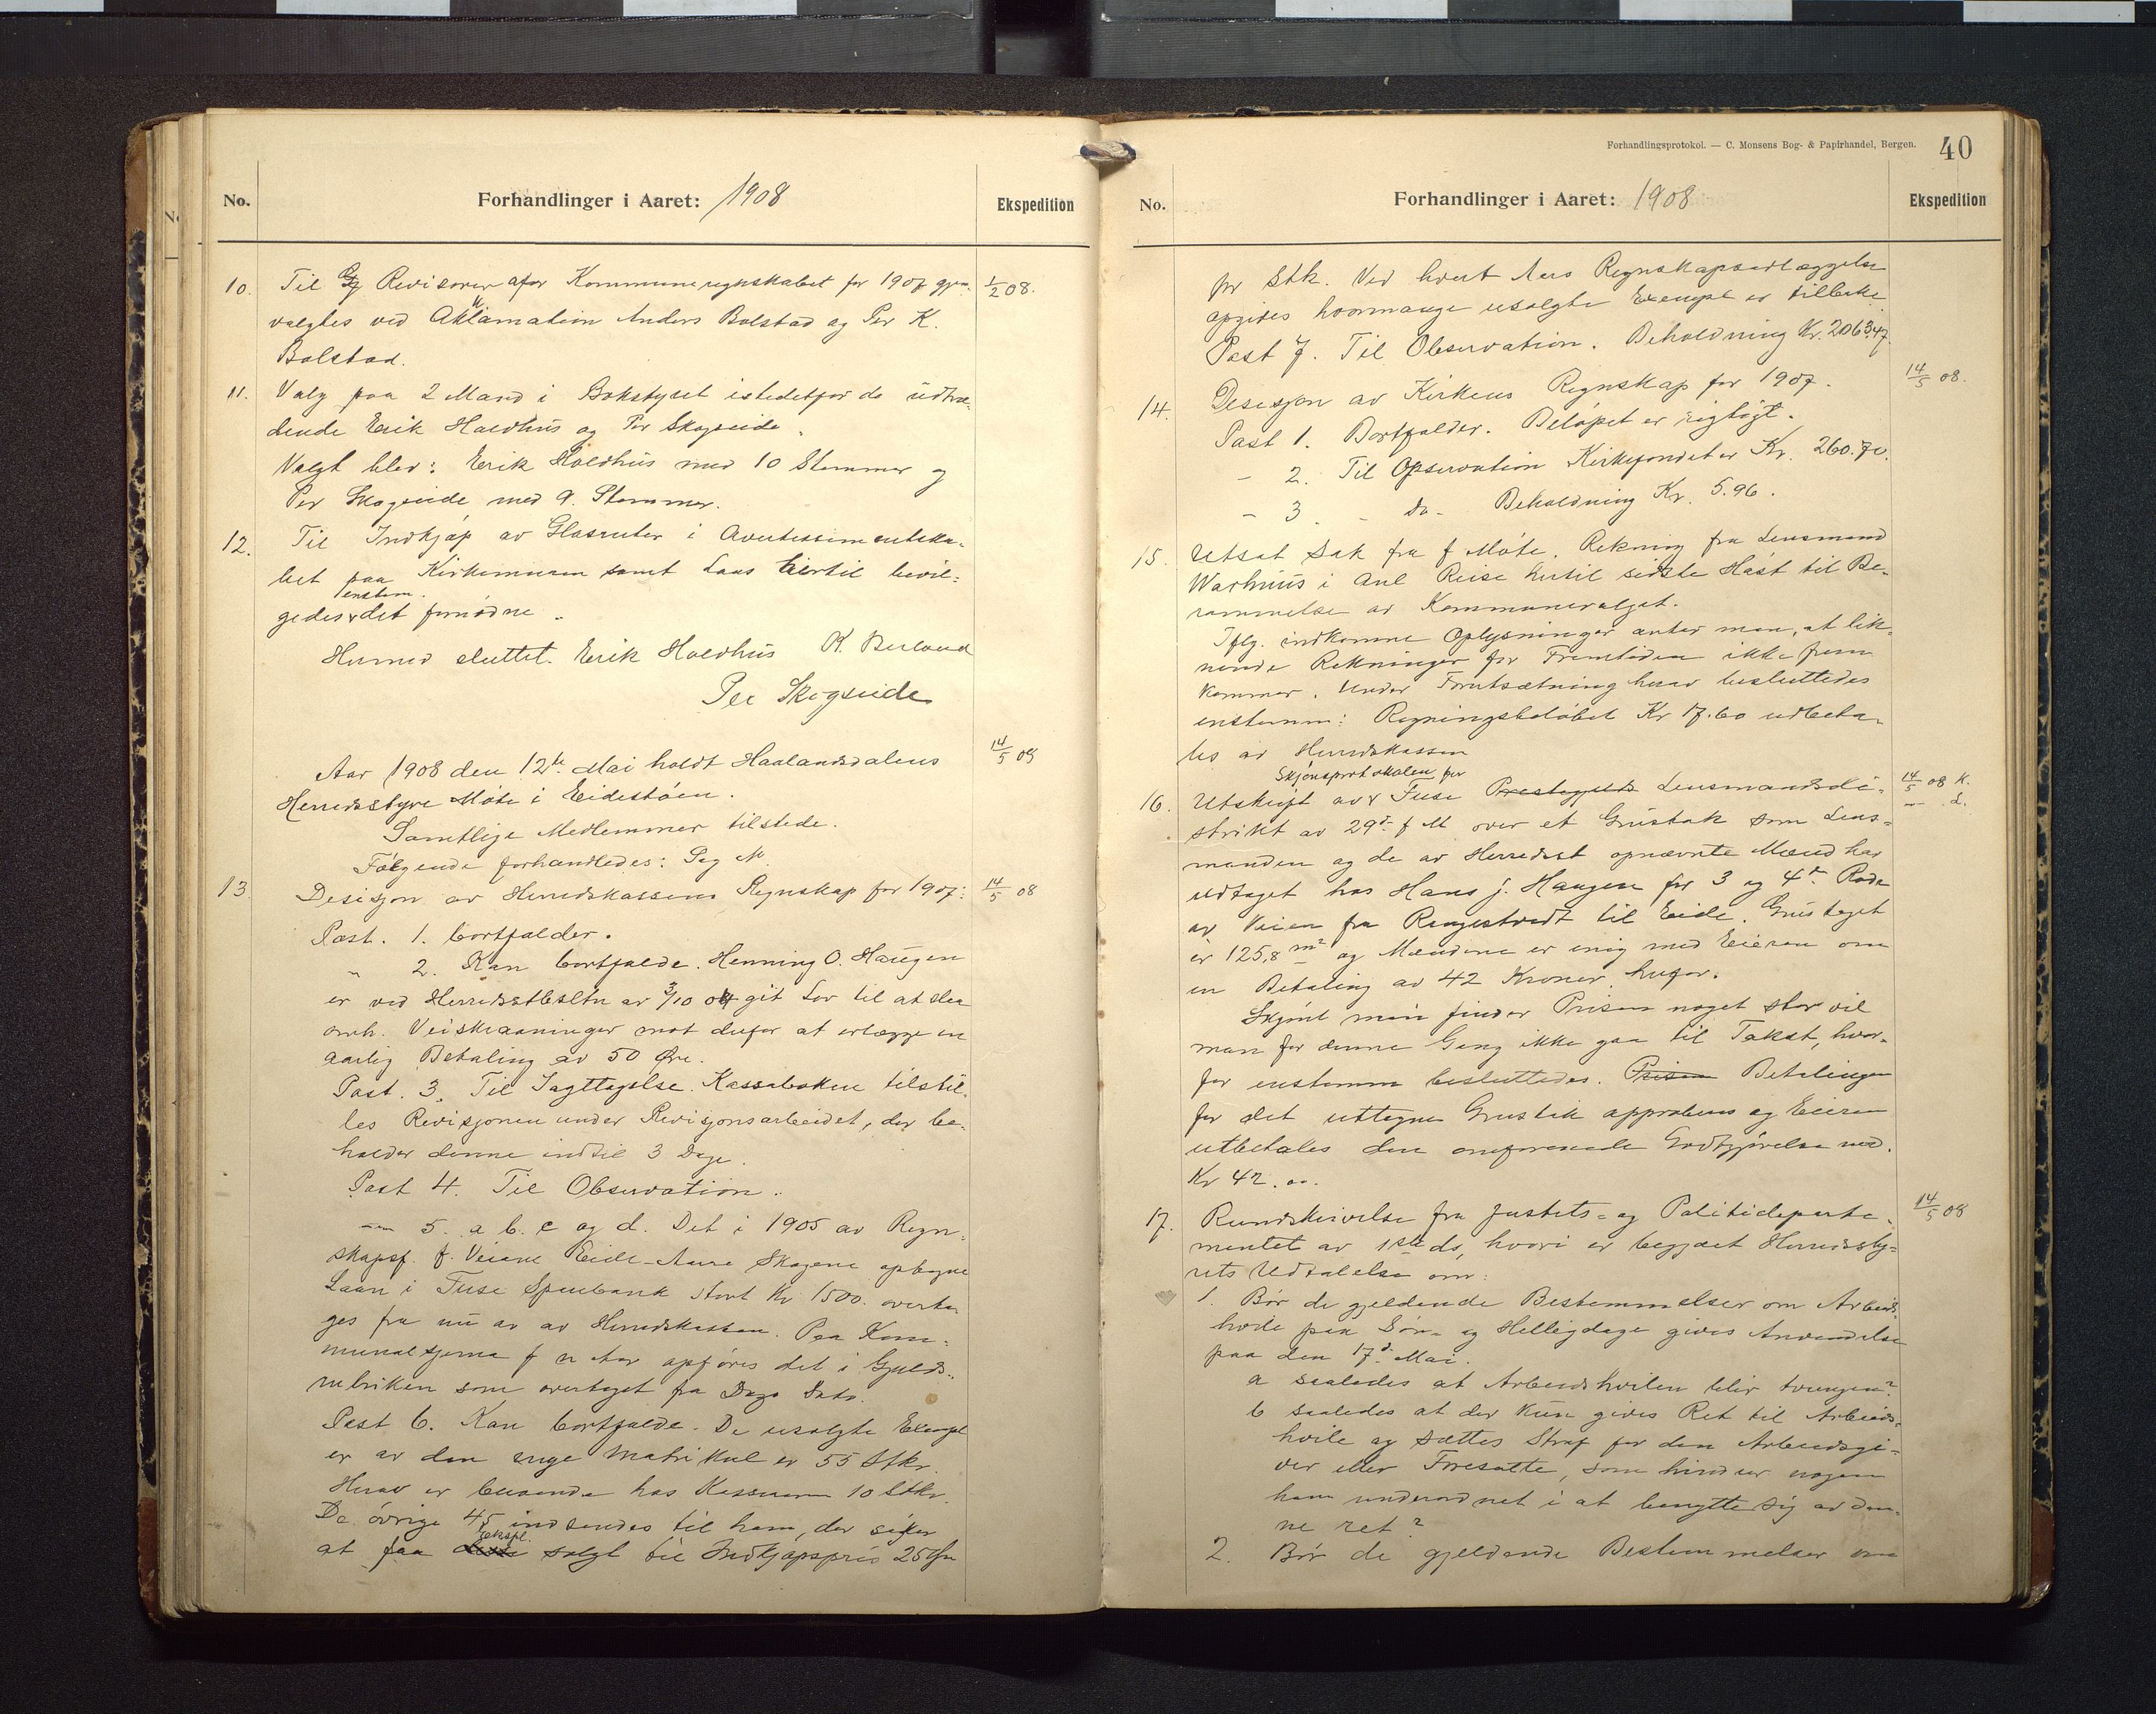 No.
Forhandlinger i Aaret: 1908
Ekspedition
10. Til Revisorer afor Kommuneregnskabet for 1907 gjen- 1/2 08.
valgtes ved Aklamation Anders Bolstad og Per K.
Bolstad.
11. Valg paa 2 Mand i Bokstyret istedetfor de udtræ-
dende Erik Holdhus og Per Skogseide.
Valgt blev: Erik Holdhus med 10 Stemmer og
Per Skogseide med 9. Stemmer.
12. Til Indkjøp av Glasruter i Avertissementska-
bet paa Kirkemuren samt Laas hertil bevil-
enstem.
gedes det fornødne.
Hermed sluttet. Erik Holdhus K. Berland
Per Skogseide
Aar 1908 den 12te Mai holdt Haalandsdalens 14/5 08
Herredsstyre Møte i Eidestøen.
Samtlige Medlemmer tilstede.
Følgende forhandledes: Sag No
13. Desisjon av Herredskassens Regnskap for 1907: 14/5 08
Post. 1. bortfalder.
" 2. Kan bortfalde. Henning O. Haugen
er ved Herredsstbesltn av 3/10 04 git Lov til at slaa
omh. Veiskraaninger mot derfor at erlægge en
aarlig Betaling av 50 Øre.
Post. 3. Til Iagttagelse. Kassaboken tilstil-
les Revisjonen under Revisjonsarbeidet, der be-
holder denne indtil 3 Dage.
Post 4. Til Observation.
— 5. a b. c og d. Det i 1905 av Regn-
skapsf. f. Veiene Eide-Aure Skogene optagne
Laan i Fuse Sparebank stort Kr 1500. overta-
ges fra nu av av Herredskassen. Paa Kom-
munalskjema f n Aar opføres det i Gjelds-
rubriken som overtaget fra Dags Dato.
Post 6. Kan bortfalde. De usolgte Exempl
er av den nye Matrikul er 55 Stkr.
Herav er beroende hos Kassereren 10 Stkr.
De øvrige 45 indsendes til ham, der søker
Ekspl.
at faa disse solgt til Indkjøpspris 25 Øre
Forhandlingsprotokol. — C. Monsens Bog- & Papirhandel, Bergen. 40
No.
Forhandlinger i Aaret: 1908
Ekspedition
pr Stk. Ved hvert Aars Regnskapsavlæggelse
opgives hvormange usolgte Exempl er tilbake
Post 7. Til Observation. Beholdning Kr. 2063,47.
14. Desisjon av Kirkens Regnskap for 1907. 14/5 08.
Post 1. Bortfalder. Beløpet er rigtigt.
- 2. Til Opservation Kirkefondet er Kr. 260.70.
- 3. - Do - Beholdning Kr. 5.96.
15. Utsat Sak fra f Møte. Rekning fra Lensmand
Warhuus i anl Reise hertil sidste Høst til Be-
rammelse av Kommunevalget.
Iflg. indkomne Oplysninger antar man, at lik-
nende Rekninger for Fremtiden ikke frem
kommer. Under Forutsætning herav besluttedes
enstemm: Regningsbeløbet Kr 17.60 udbeta-
les av Herredskassen
Skjønsprotokolen for
16. Utskrift av Fuse Prestegjelds Lensmandsdi- 14/5 08 K.
strikt av 29de f M over et Grustak som Lens- — L.
manden og de av Herredsst opnævnte Mænd har
udtaget hos Hans J. Haugen for 3 og 4de Rode
av Veien fra Rengestvedt til Eide. Grustaget
er 125,8 m² og Mændene er enig med Eieren om
en Betaling av 42 Kroner herfor.
Skjønt man finder Prisen noget stor vil
man for denne Gang ikke gaa til Takst, hvor-
for enstemm besluttedes. Prisen Betalingen
for det uttagne Grustak approberes og Eieren
utbetales den omforenede Godtgjørelse med.
Kr 42.00.
17. Rundskrivelse fra Justits- og Politideparte- 14/5 08
mentet av 1ste ds, hvori er begjært Herredssty-
rets Udtalelse om:
1. Bør de gjeldende Bestemmelser om Arbeids
hvile paa Søn- og Helligdage gives Anvendelse
paa den 17de Mai.
a saaledes at Arbeidshvilen blir tvungen?
b saaledes at der kun gives Ret til Arbeids-
hvile og sættes Straf for den Arbeidsgi-
ver eller Foresatte, som hindrer nogen
ham underordnet i at benytte sig av den-
ne ret?
2. Bør de gjeldende Bestemmelser om